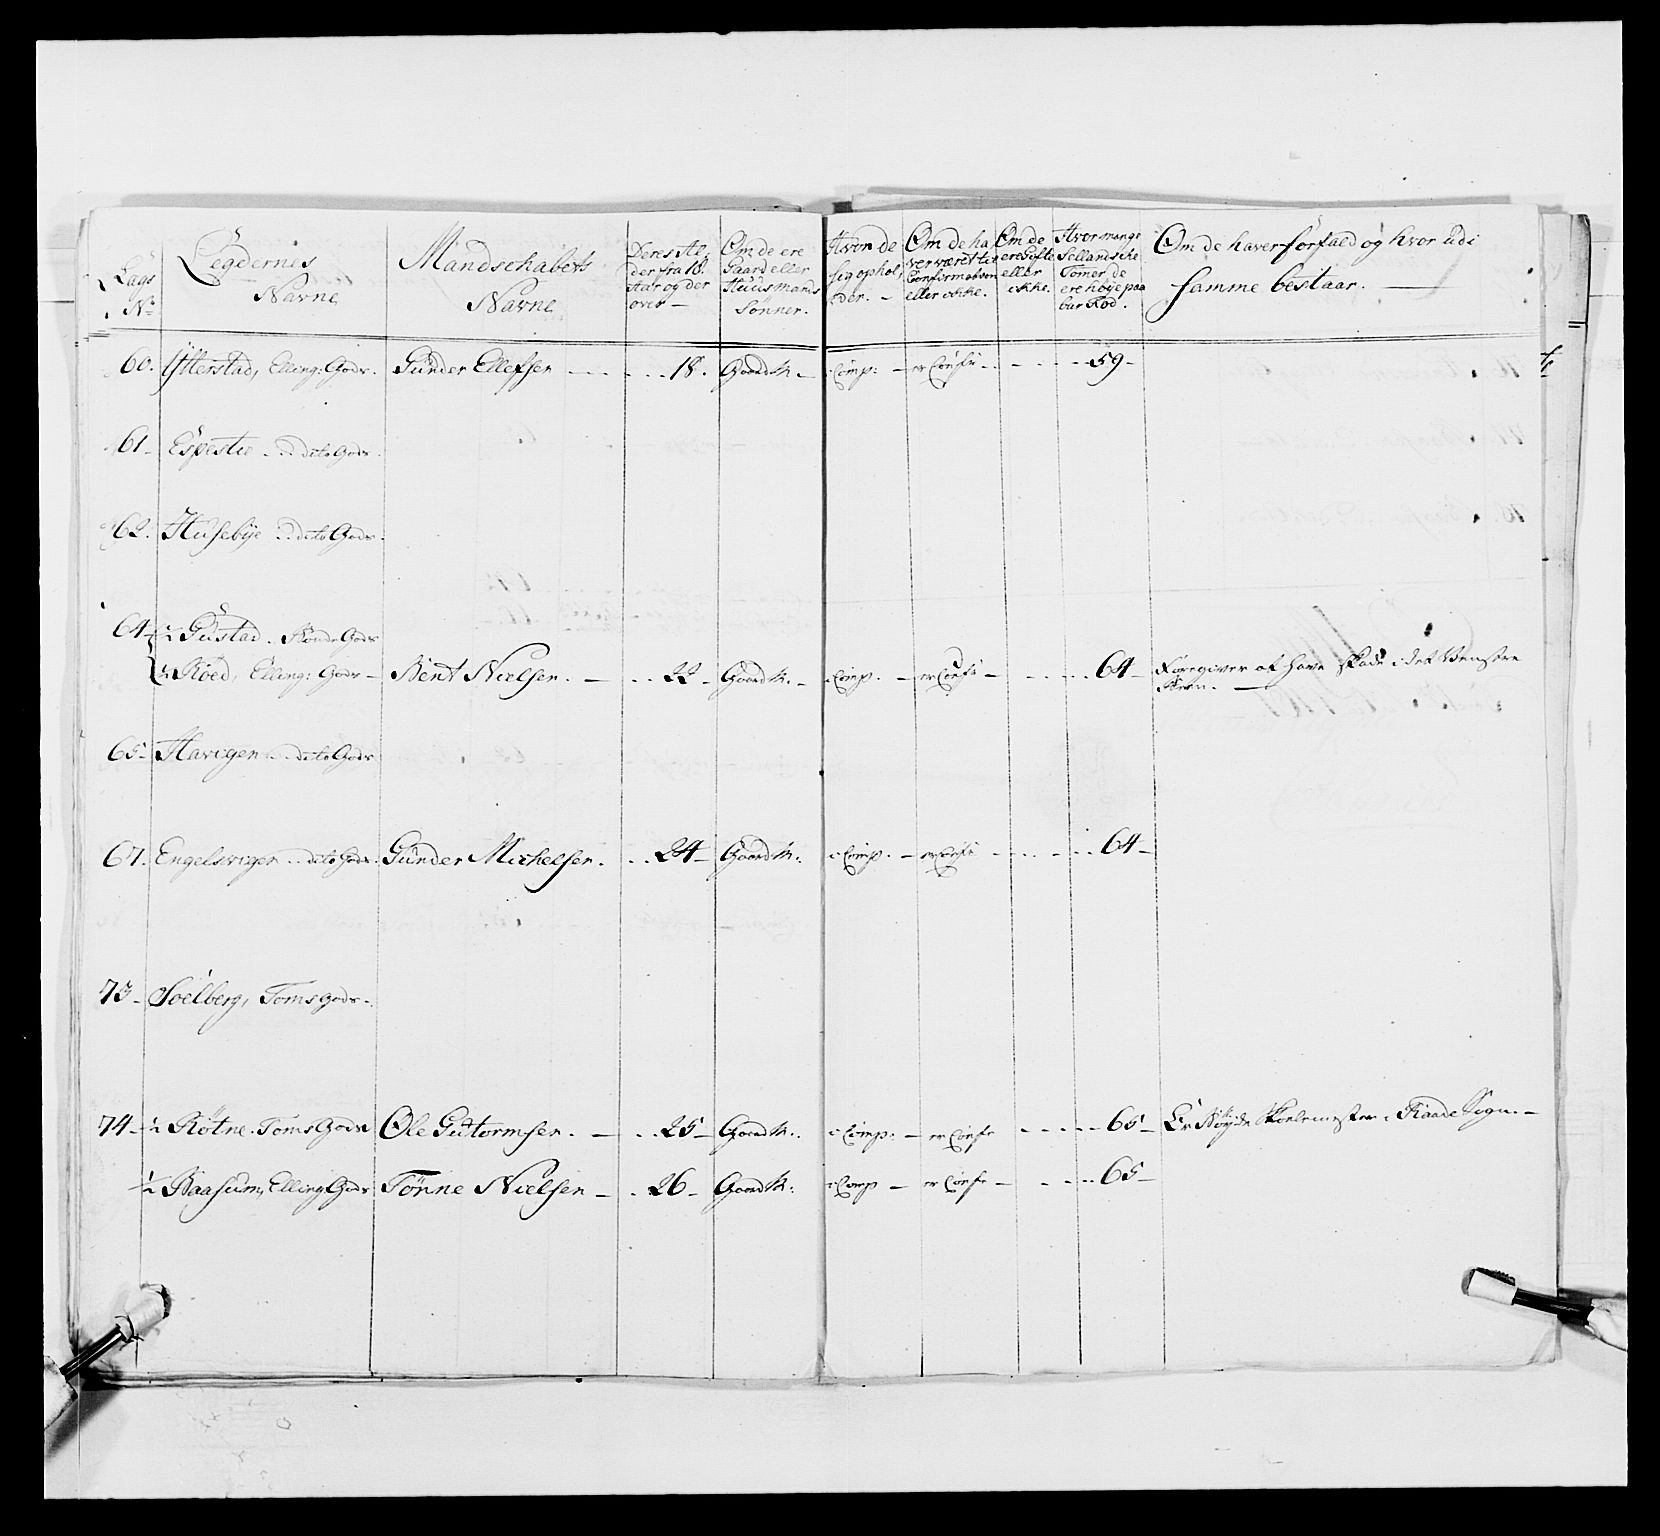 Lægs No
Legdernis Navne
Mandschabets Navne
Deres Alder fra 18. Aar og der over —
Om de ere Gaard eller Huusmands Sønner.
Hvor de sig opholder. —
Om de haver været ter Confermation eller ikke.
Om de ere Gifte eller ikke.
Hvor mange Sellandske Tomer de ere høye paa bar Fod.
Om de haver forfald og hvor udi samme bestaar. —
60. Ytterstad, Elling: Gods. Gunder Ellefsen — 18. Gaard M. — i Comp: — er Conf: — 59 —
61 — Espestie — dito Gods.
62. Husebÿe — dito Gods.
64 — ½ Gustad. Gods
½ Röed, Elling: Gods — Bent Nielsen. — 22 — Gaard M. — i Comp. — er Conf: — 64 — Foregiver at have skade i det Venstre
65 — Havigen — dito Gods
67. Engelsvigen — dito Gods. Gunder Michelsen. 24 — Gaard M. i Comp. — er Conf: 64 —
73 — Soelberg, Toms Gods —
74 — ½ Rötne. Toms Gods Ole Gutormsen. — 25 — Gaard M. i Comp: — er Conf: 65 — Er Skoelemester i Raade Sogn. —
½ Baasum, Elling Gods Tönne Nielsen — 26 — Gaard M: i Comp — er Conf: — 65 —